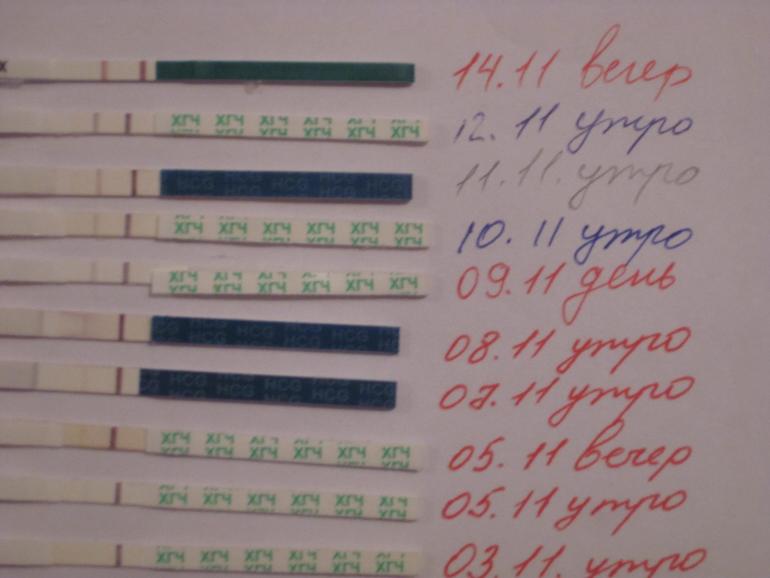 14.11 вечер
ХГЧ ХГЧ ХГЧ ХГЧ ХГЧ ХГЧ 12.11 утро
HCG HCG HCG 11.11. утро
ХГЧ ХГЧ ХГЧ ХГЧ ХГЧ ХГЧ 10.11 утро
ХГЧ ХГЧ ХГЧ ХГЧ ХГЧ ХГЧ 09.11 день
HCG HCG HCG 08.11 утро
HCG HCG HCG 07.11 утро
ХГЧ ХГЧ ХГЧ ХГЧ ХГЧ ХГЧ 05.11 вечер
ХГЧ ХГЧ ХГЧ ХГЧ ХГЧ ХГЧ 05.11 утро
ХГЧ ХГЧ ХГЧ ХГЧ ХГЧ ХГЧ 03.11. утро